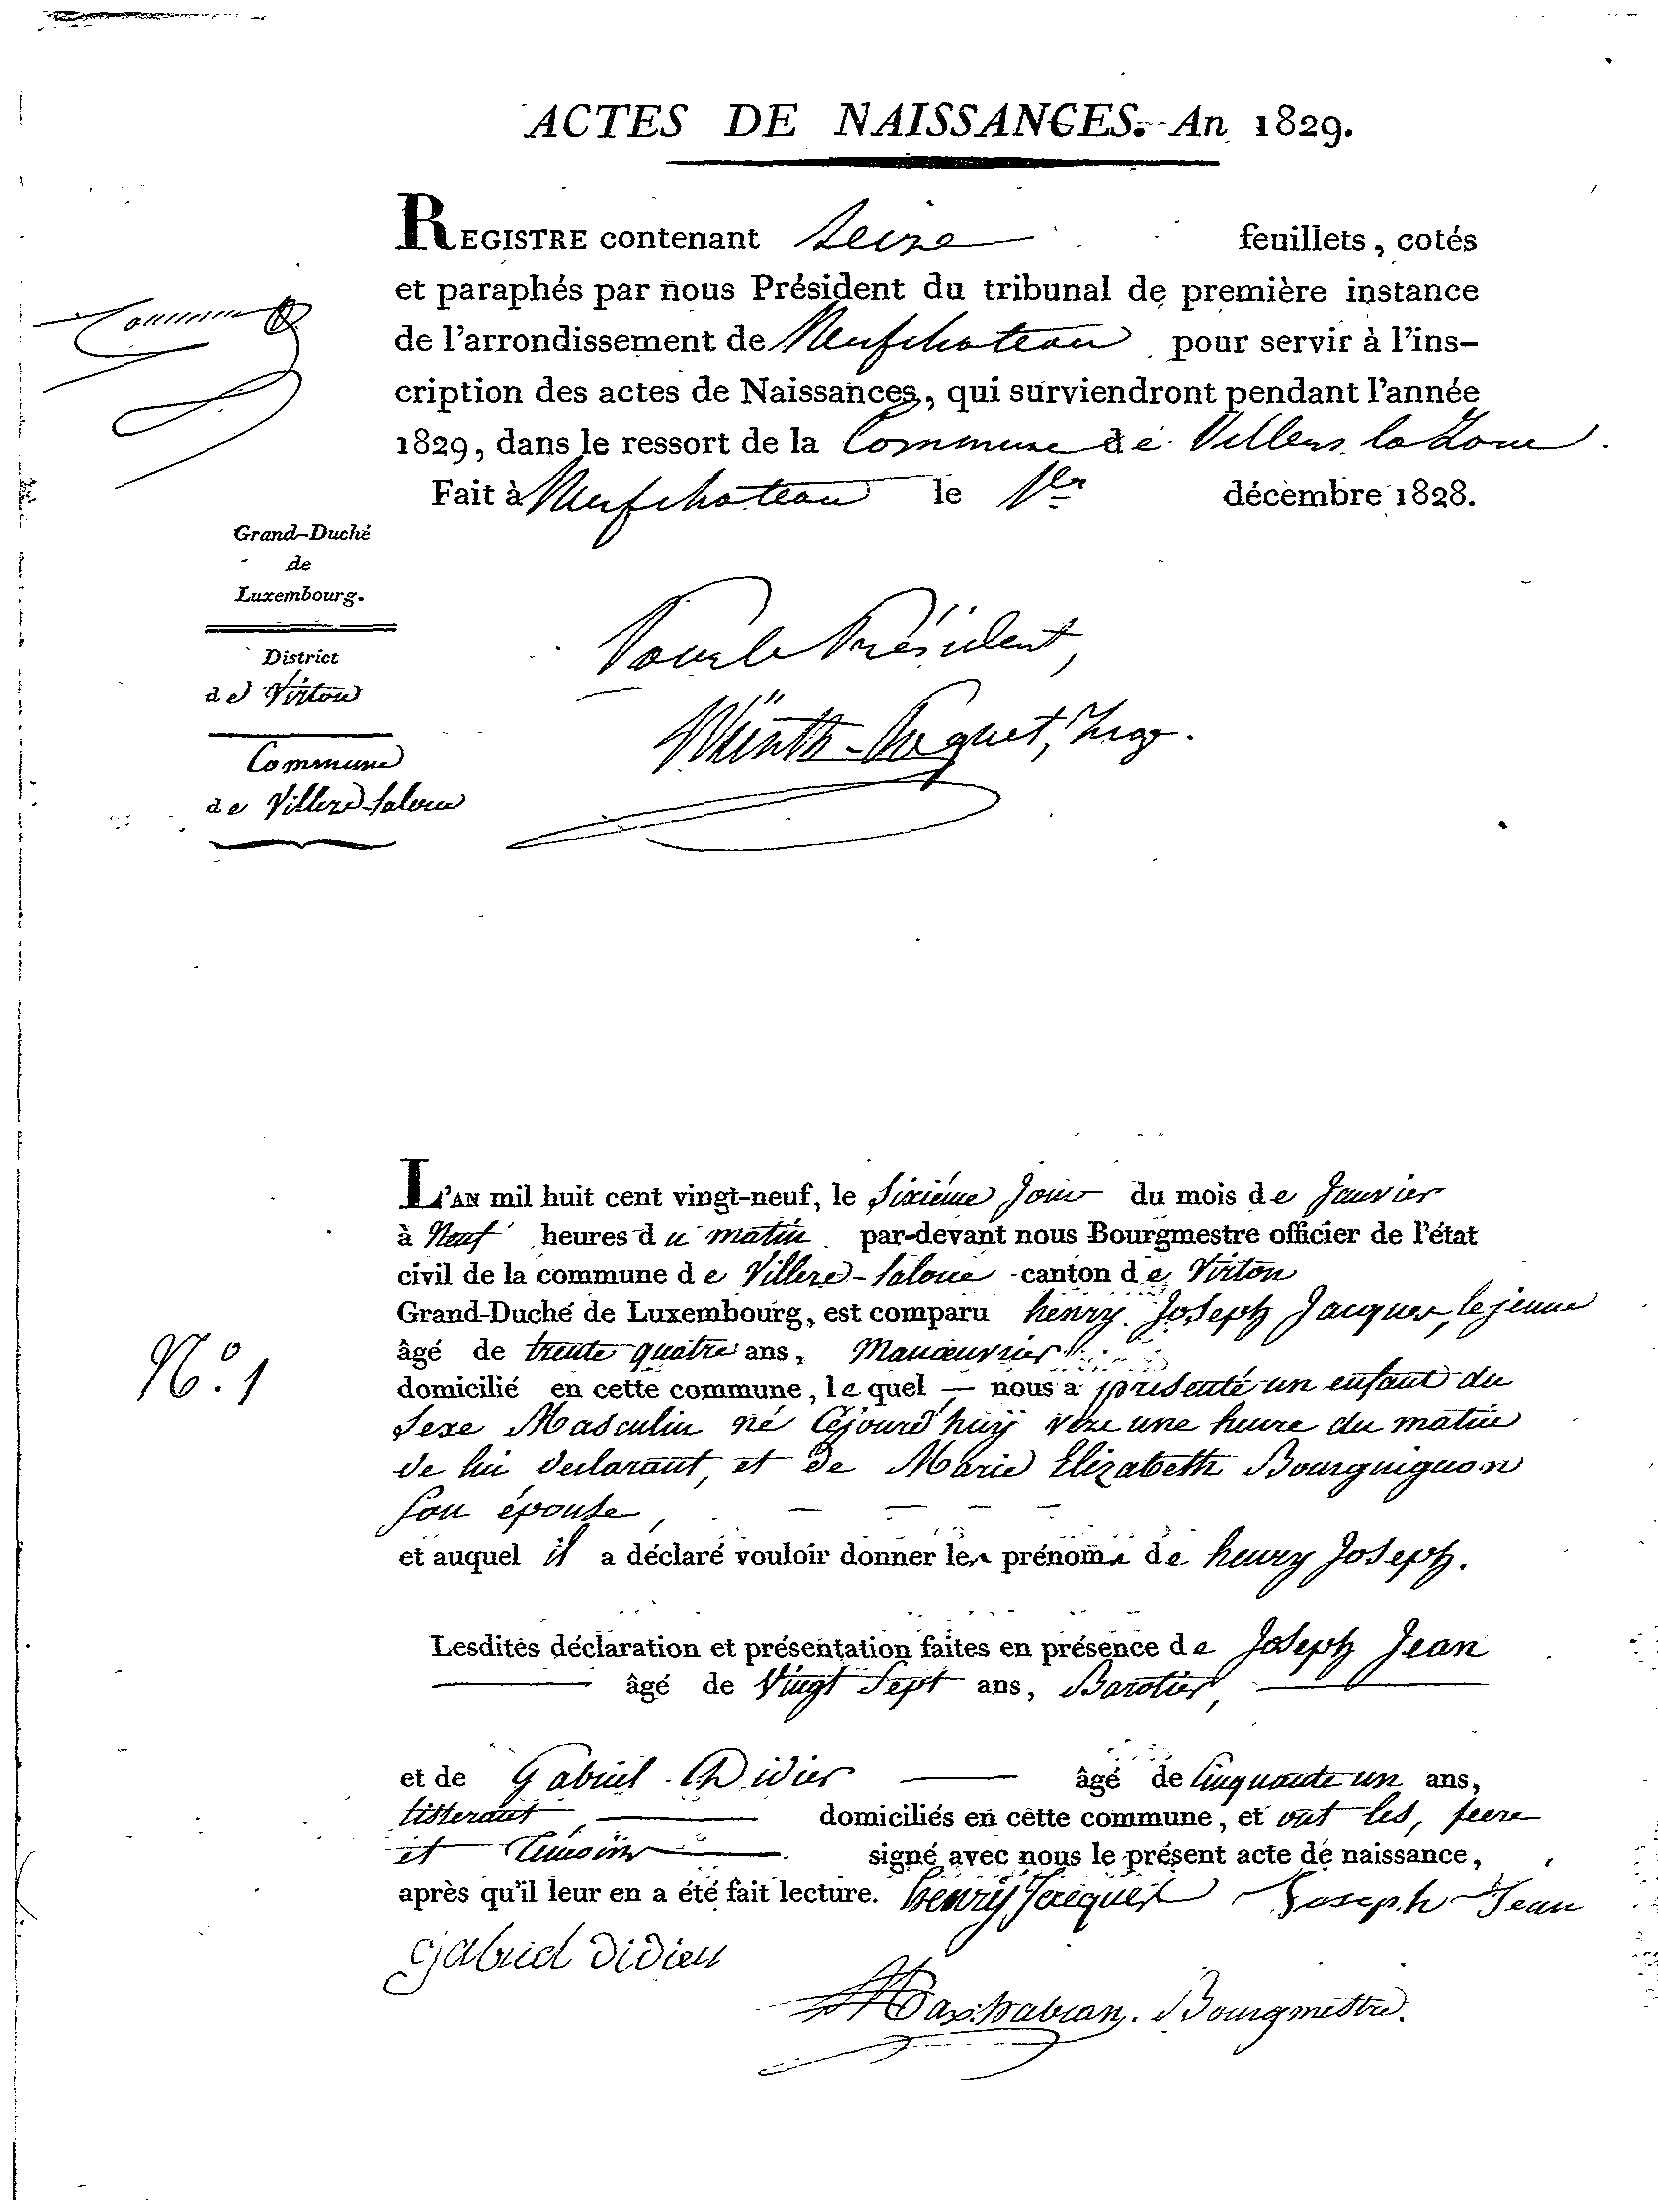 ACTES DE NAISSANCES. An 1829.
REGISTRE contenant Seize feuillets, cotés
et paraphés par nous Président du tribunal de première instance
de l'arrondissement de Neufchateau pour servir à l'ins-
cription des actes de Naissances, qui surviendront pendant l'année
1829, dans le ressort de la Commune de Villers la Loue.
Fait à Neufchateau le 1er décembre 1828.
Grand-Duché
de
Luxembourg.
District
de Virton
Commune
de Villers-laloue
Pour le Président,
Würth-Paquet, Juge.
N.° 1
L'AN mil huit cent vingt-neuf, le Sixiéme Jour du mois de Janvier
à Neuf heures du matin par-devant nous Bourgmestre officier de l'état
civil de la commune de Villers-laloue canton de Virton
Grand-Duché de Luxembourg, est comparu henry Joseph Jacques, lejeune
âgé de trente quatre ans, Manœuvrier
domicilié en cette commune, lequel — nous a présenté un enfant du
Sexe Masculin né Cejourd'huÿ vers une heure du matin
de lui declarant, et de Marie Elizabeth Bourguignon
Son épouse,
et auquel il a déclaré vouloir donner les prénoms de henry Joseph.
Lesdites déclaration et présentation faites en présence de Joseph Jean
âgé de Vingt Sept ans, Barotier,
et de Gabriel Didier âgé de Cinquante un ans,
tisserant, domiciliés en cette commune, et ont les, peere
et témoins signé avec nous le présent acte de naissance,
après qu'il leur en a été fait lecture. henrÿ Jacques Joseph Jean
gabriel didier
Bourgmestre.